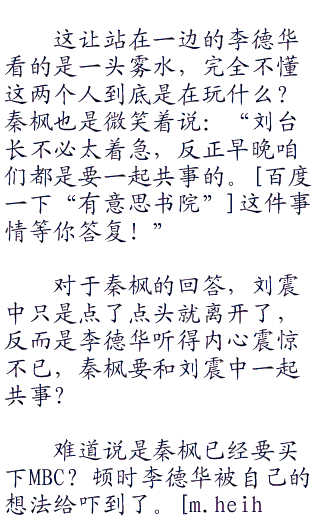 这让站在一边的李德华
看的是一头雾水，完全不懂
这两个人到底是在玩什么？
秦枫也是微笑着说：“刘台
长不必太着急，反正早晚咱
们都是要一起共事的。[百度
一下“有意思书院”]这件事
情等你答复！”
对于秦枫的回答，刘震
中只是点了点头就离开了，
反而是李德华听得内心震惊
不已，秦枫要和刘震中一起
共事？
难道说是秦枫已经要买
下MBC？顿时李德华被自己的
想法给吓到了。[m.heih